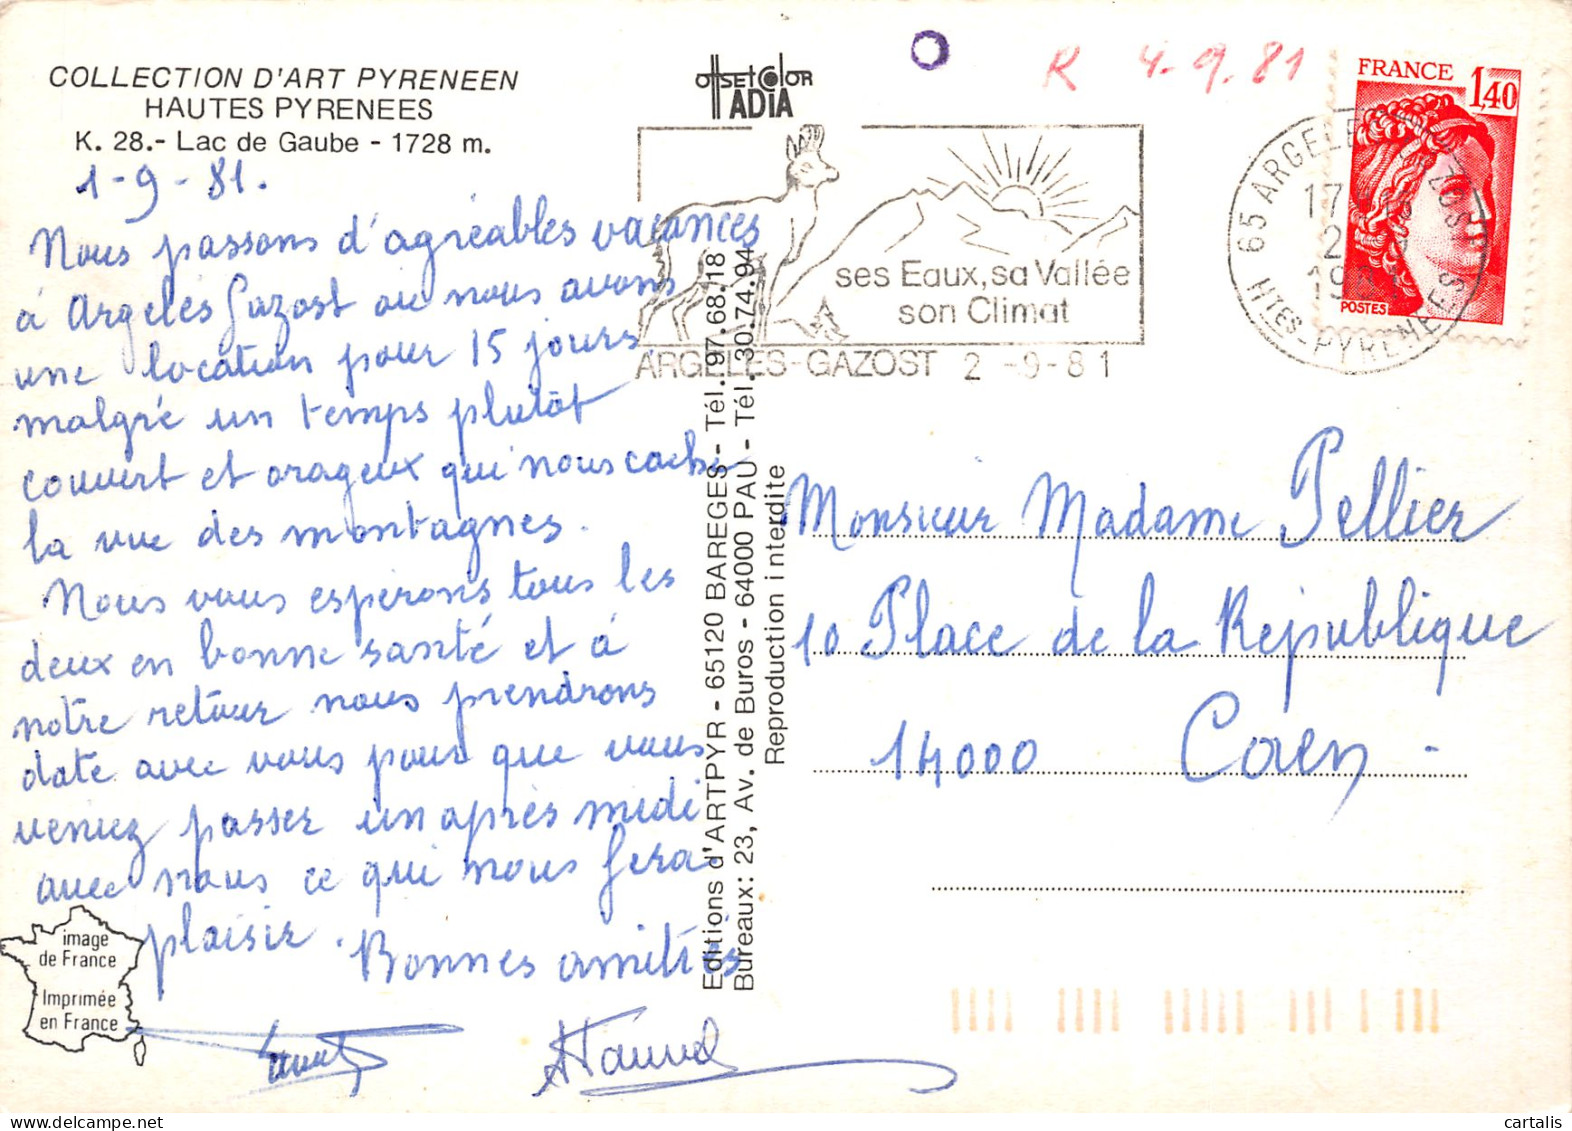 COLLECTION D'ART PYRENEEN
HAUTES PYRENEES
K. 28.- Lac de Gaube - 1728 m.
1-9-81.
Nous passons d'agréables vacances
à Argelès Gazost ou nous avons
une location pour 15 jours
malgré un temps plutôt
couvert et orageux qui nous cache
la vue des montagnes.
Nous vous espérons tous les
deux en bonne santé et à
notre retour nous prendrons
date avec vous pour que vous
veniez passer un après midi
avec nous ce qui nous fera
plaisir. Bonnes amitiés
image
de France
Imprimée
en France
Editions d'ARTPYR - 65120 BAREGES - Tél. 97.68.18
Bureaux: 23, Av. de Buros - 64000 PAU - Tél. 30.74.94
Reproduction interdite
offset color
ADIA
R 4-9.81
ses Eaux, sa Vallée
son Climat
ARGELES-GAZOST 2 -9-81
65 ARGELES GAZOST
HTES-PYRENEES
FRANCE 1,40
POSTES
Monsieur Madame Pellier
10 Place de la République
14000 Caen -